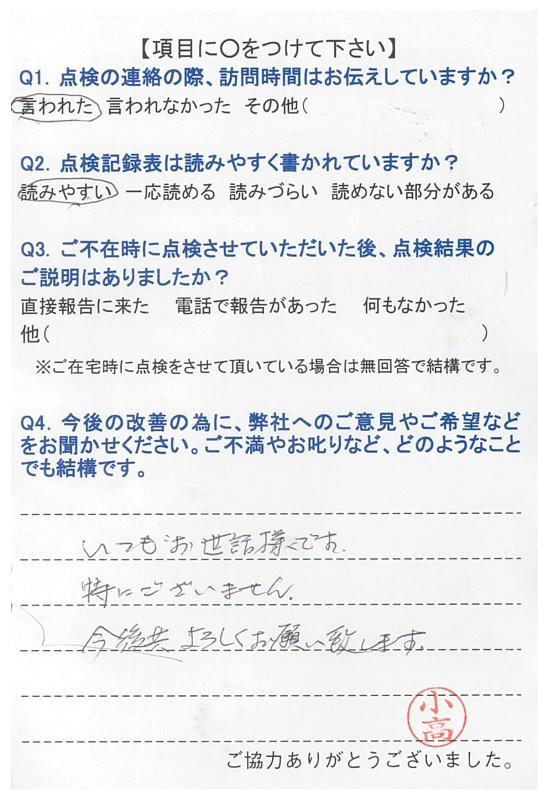 【項目に〇をつけて下さい】
Q1. 点検の連絡の際、訪問時間はお伝えしていますか？
言われた 言われなかった その他( )
Q2. 点検記録表は読みやすく書かれていますか？
読みやすい 一応読める 読みづらい 読めない部分がある
Q3. ご不在時に点検させていただいた後、点検結果の
ご説明はありましたか？
直接報告に来た 電話で報告があった 何もなかった
他( )
※ご在宅時に点検をさせて頂いている場合は無回答で結構です。
Q4. 今後の改善の為に、弊社へのご意見やご希望など
をお聞かせください。ご不満やお叱りなど、どのようなこと
でも結構です。
いつもお世話様です.
特にございません.
今後共よろしくお願い致します.
小高
ご協力ありがとうございました。